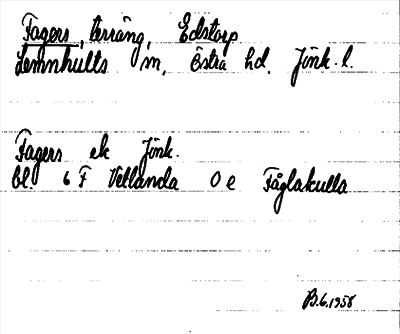 Fagers, terräng, Edstorp
Lemnhults sn, Östra hd. Jönk. l.
Fagers ek Jönk.
bl. 6 F Vetlanda 0 e Fåglakulla
B.6.1958